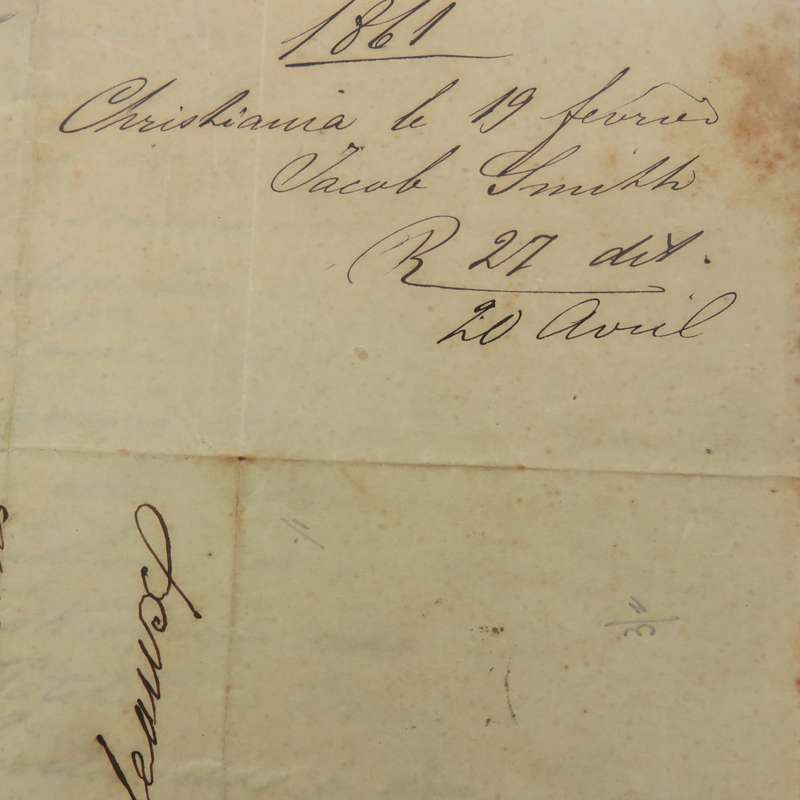 1861
Christiania le 19 fevrier
Jacob Smith
R 27 dit.
20 Avril